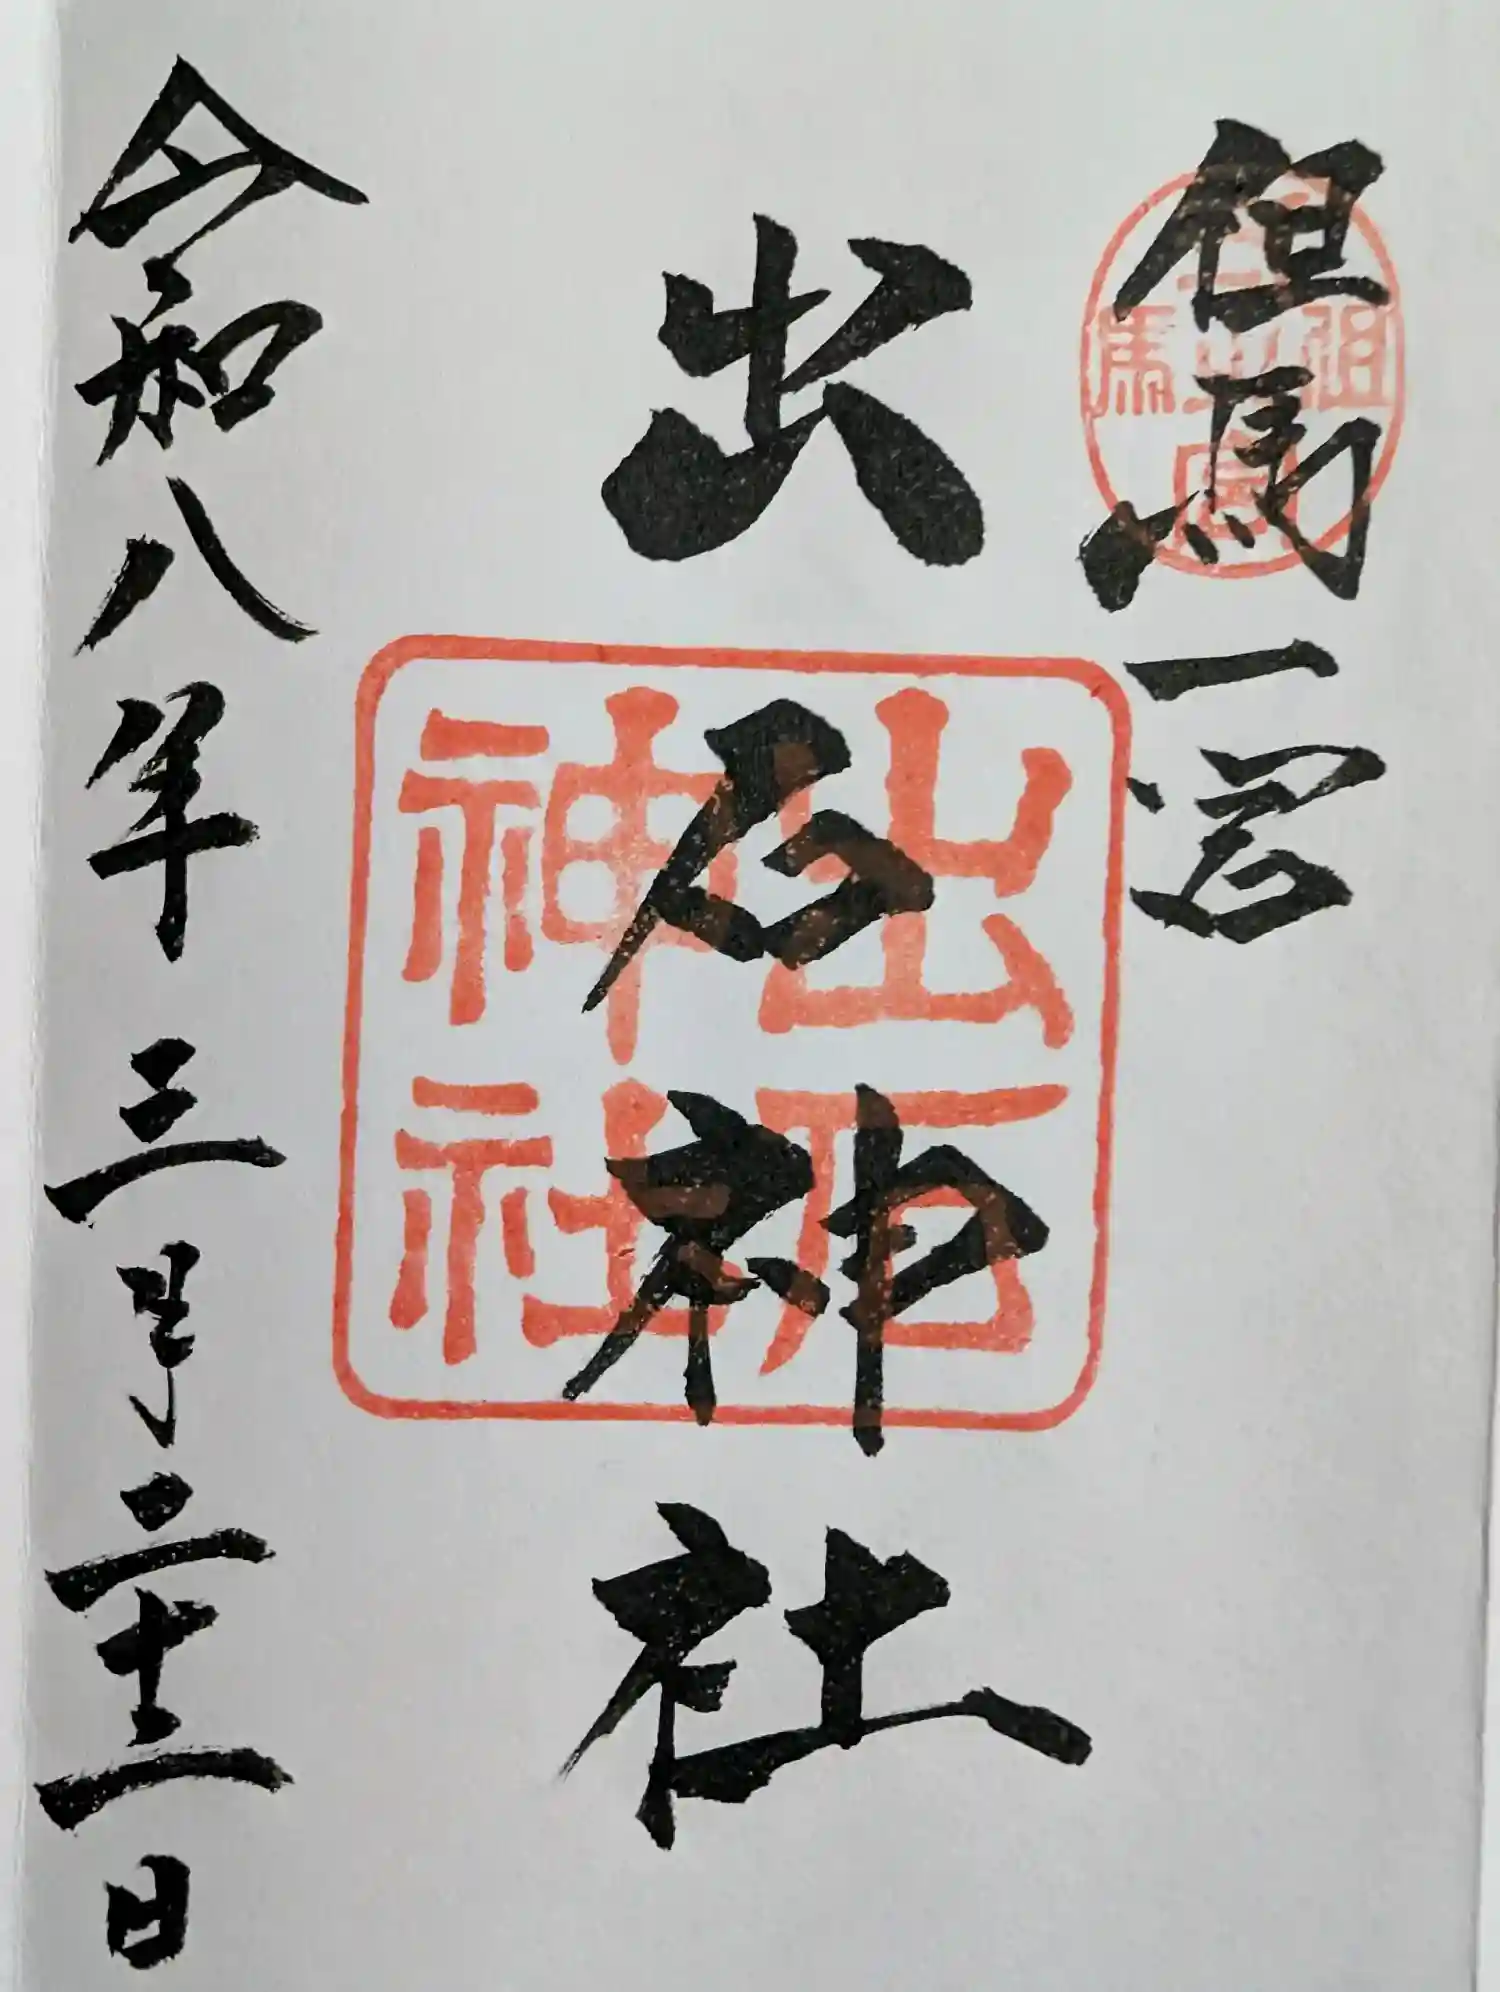 但馬一宮
出石神社
令和八年三月二十二日
出石
神社
但馬